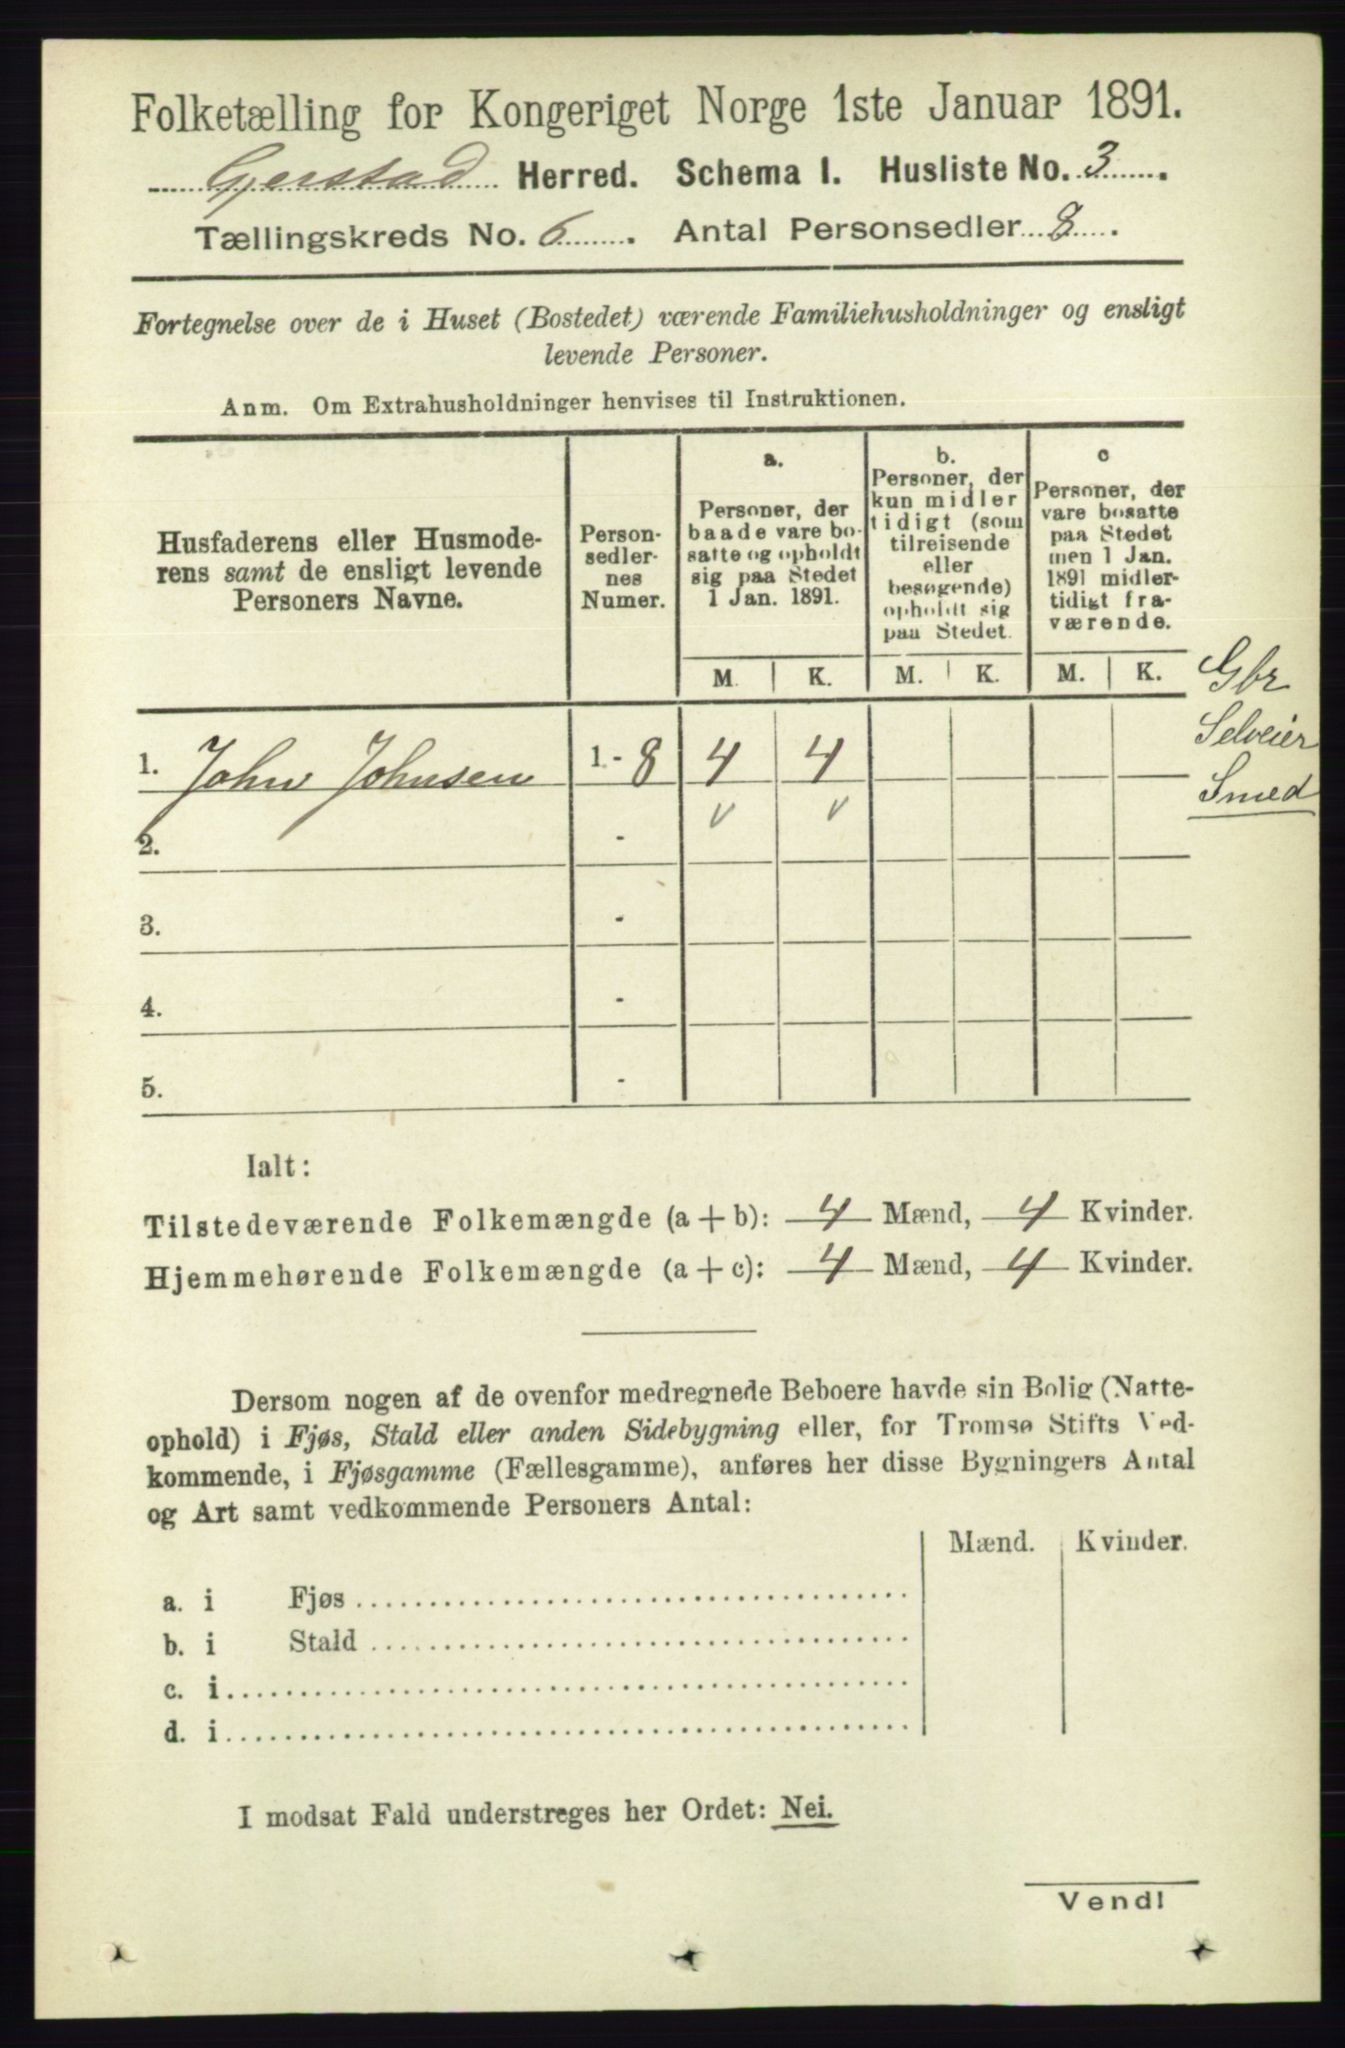 Folketælling for Kongeriget Norge 1ste Januar 1891.
Gjerstad Herred. Schema I. Husliste No. 3.
Tællingskreds No. 6. Antal Personsedler 8.
Fortegnelse over de i Huset (Bostedet) værende Familiehusholdninger og ensligt
levende Personer.
Anm. Om Extrahusholdninger henvises til Instruktionen.
Husfaderens eller Husmode-
rens samt de ensligt levende
Personers Navne.
Person-
sedler-
nes
Numer.
a.
Personer, der
baade vare bo-
satte og opholdt
sig paa Stedet
1 Jan. 1891.
b.
Personer, der
kun midler
tidigt (som
tilreisende
eller
besøgende)
opholdt sig
paa Stedet.
c
Personer, der
vare bosatte
paa Stedet
men 1 Jan.
1891 midler-
tidigt fra-
værende.
M. K. M. K. M. K.
Gbr
Selveier
Smed
1. John Johnsen 1.- 8 4 4
v v
2. -
3. -
4. -
5. -
Ialt:
Tilstedeværende Folkemængde (a + b): 4 Mænd, 4 Kvinder.
Hjemmehørende Folkemængde (a + c): 4 Mænd, 4 Kvinder.
Dersom nogen af de ovenfor medregnede Beboere havde sin Bolig (Natte-
ophold) i Fjøs, Stald eller anden Sidebygning eller, for Tromsø Stifts Ved-
kommende, i Fjøsgamme (Fællesgamme), anføres her disse Bygningers Antal
og Art samt vedkommende Personers Antal:
Mænd. Kvinder.
a. i Fjøs
b. i Stald
c. i
d. i
I modsat Fald understreges her Ordet: Nei.
Vend!